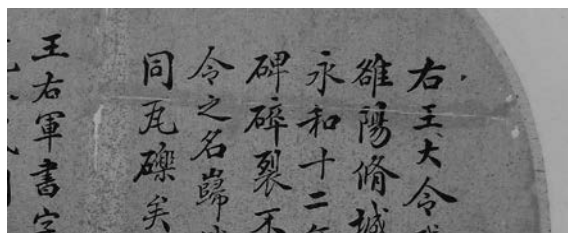 右王大令
雒陽脩城
永和十二年
碑碎裂不
令之名歸
同瓦礫矣
王右軍書字